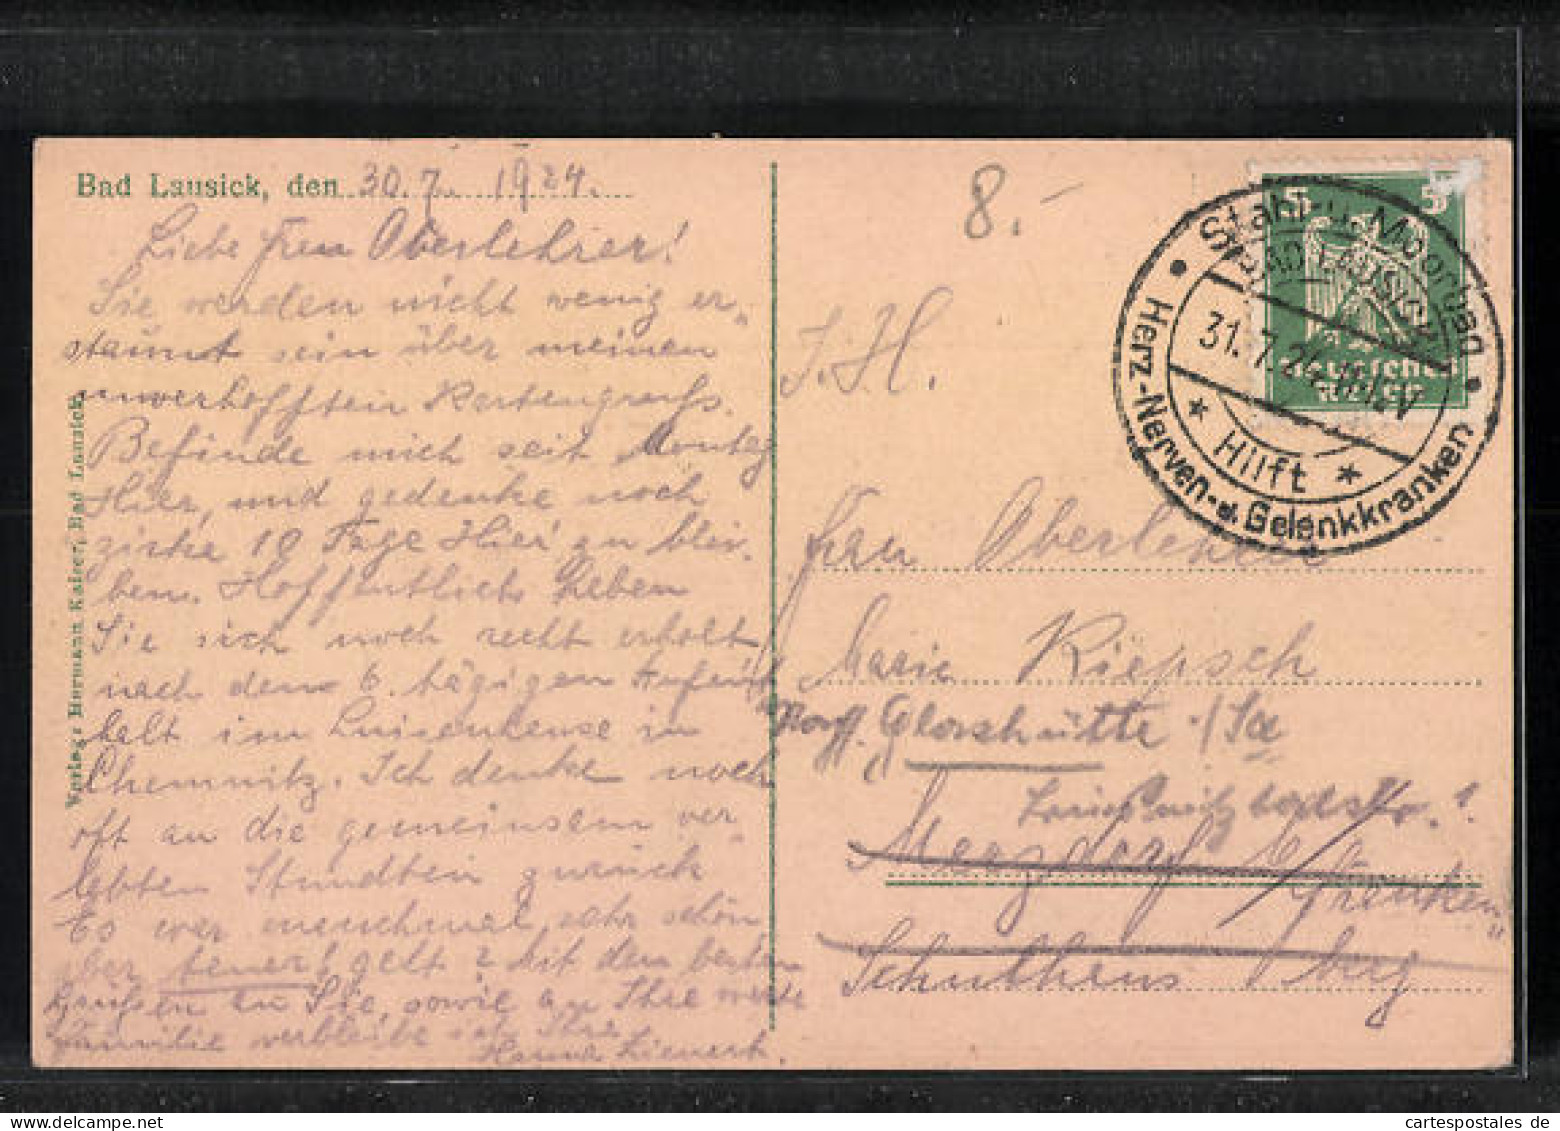 Bad Lausick, den 30.7. 1924.
Liebe Frau Oberlehrer!
Sie werden nicht wenig er-
staunt sein über meinen
unverhofften Kartengruß.
Befinde mich seit Montag
Hier, und gedenke noch
zirka 10 Tage Hier zu blei-
ben. Hoffentlich haben
Sie sich noch recht erholt
nach dem 6. tägigen Aufent-
halt im Luisenhause in
Chemnitz. Ich denke noch
oft an die gemeinsam ver-
lebten Stunden zurück
Es war manchmal sehr schön
aber teuer! gelt? Mit den besten
Grüßen an Sie, sowie an Ihre werte
Familie verbleibe ich Ihre
Hanna Lienert.
Verlag: Hermann Kaiser, Bad Lausick
8.-
I. H.
Frau Oberlehrer
Marie Riepsch
Glashütte i/Sa
Schulhaus
5 5
Deutsches
Reich
Stahl- u. Moorbad
BAD LAUSICK
31.7.24
* Hilft *
Herz-Nerven- u. Gelenkkranken
cartespostales.de